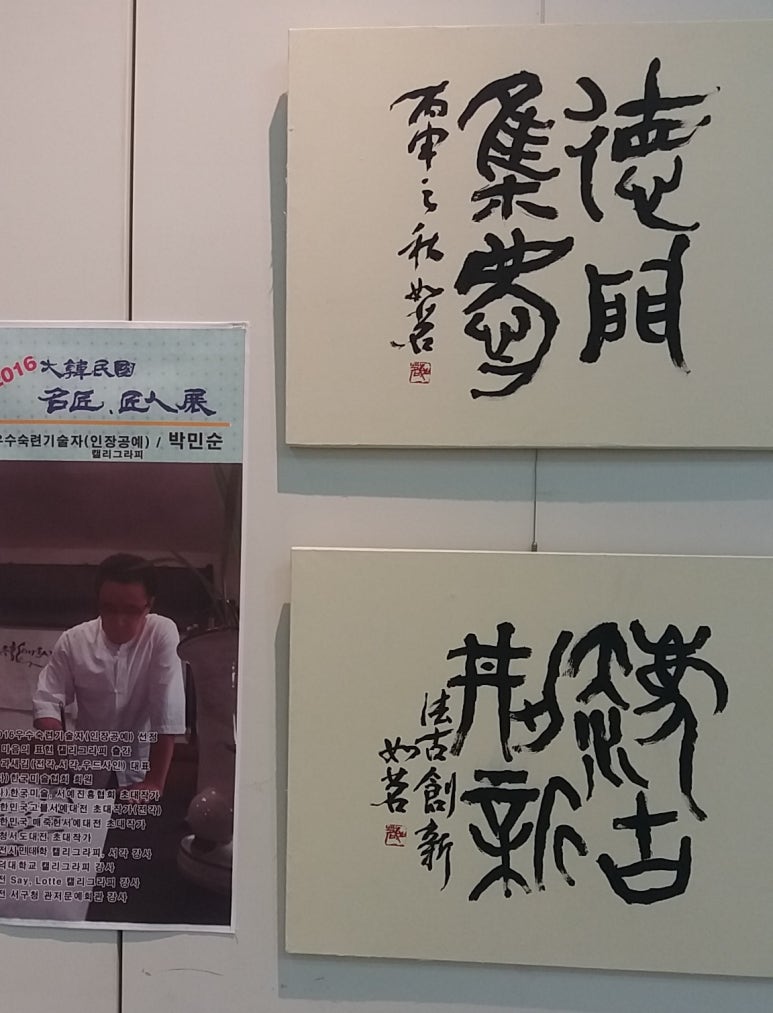 2016 大韓民國
名匠、匠人展
우수숙련기술자(인장공예) / 박민순
캘리그라피
016우수숙련기술자(인장공예) 선정
마음의 표현 캘리그라피 출간
과새김(전각,서각,우드사인) 대표
)한국미술협회 회원
)한국미술, 서예진흥협회 초대작가
한민국고불서예대전 초대작가(전각)
한민국 매죽헌서예대전 초대작가
청서도대전 초대작가
전시민대학 캘리그라피, 서각 강사
덕대학교 캘리그라피 강사
전 Say, Lotte 캘리그라피 강사
전 서구청 관저문예회관 강사
德門
集慶
丙申之秋 如茗
法古
創新
法古創新
如茗